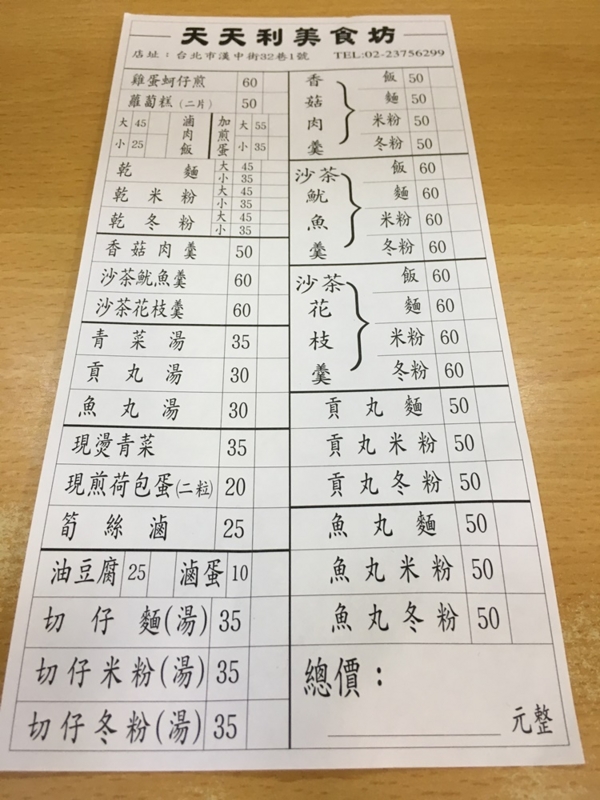 天天利美食坊
店址：台北市漢中街32巷1號 TEL:02-23756299
雞蛋蚵仔煎 60
蘿蔔糕(二片) 50
大 45 小 25 滷肉飯 加煎蛋 大 55 小 35
乾麵 大 45 小 35
乾米粉 大 45 小 35
乾冬粉 大 45 小 35
香菇肉羹 50
沙茶魷魚羹 60
沙茶花枝羹 60
青菜湯 35
貢丸湯 30
魚丸湯 30
現燙青菜 35
現煎荷包蛋(二粒) 20
筍絲滷 25
油豆腐 25 滷蛋 10
切仔麵(湯) 35
切仔米粉(湯) 35
切仔冬粉(湯) 35
香菇肉羹
飯 50
麵 50
米粉 50
冬粉 50
沙茶魷魚羹
飯 60
麵 60
米粉 60
冬粉 60
沙茶花枝羹
飯 60
麵 60
米粉 60
冬粉 60
貢丸麵 50
貢丸米粉 50
貢丸冬粉 50
魚丸麵 50
魚丸米粉 50
魚丸冬粉 50
總價：
元整